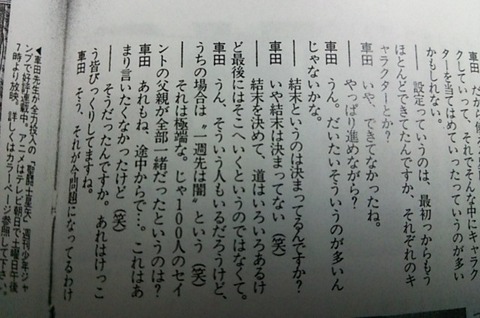 車田　だから僕
クしていって、それでそんな中にキャラク
ターを当てはめていったっていうのが多い
かもしれない。
――　設定っていうのは、最初っからもう
ほとんどできてたんですか、それぞれのキ
ャラクターとか？
車田　いや、できてなかったね。
――　やっぱり進めながら？
車田　うん。だいたいそういうのが多いん
じゃないかな。
――　結末というのは決まってるんですか？
車田　いや結末は決まってない（笑）
――　結末を決めて、道はいろいろあるけ
ど最後にはそこへいくというのではなくて。
車田　うん、そういう人もいるだろうけど、
うちの場合は〝一週先は闇〟という（笑）
――　それは極端な。じゃ100人のセイ
ントの父親が全部一緒だったというのは？
車田　あれもね、途中からで…。これはあ
まり言いたくなかったけど（笑）
――　そうだったんですか。あれはけっこ
う皆びっくりしてますね。
車田　そう、それが今問題になってるわけ
◀車田先生が全力投入の「聖闘士星矢」週刊少年ジャ
ンプで好評連載中。アニメはテレビ朝日で土曜日午後
7時より放映。詳しくはカラーページ参照して下さい。